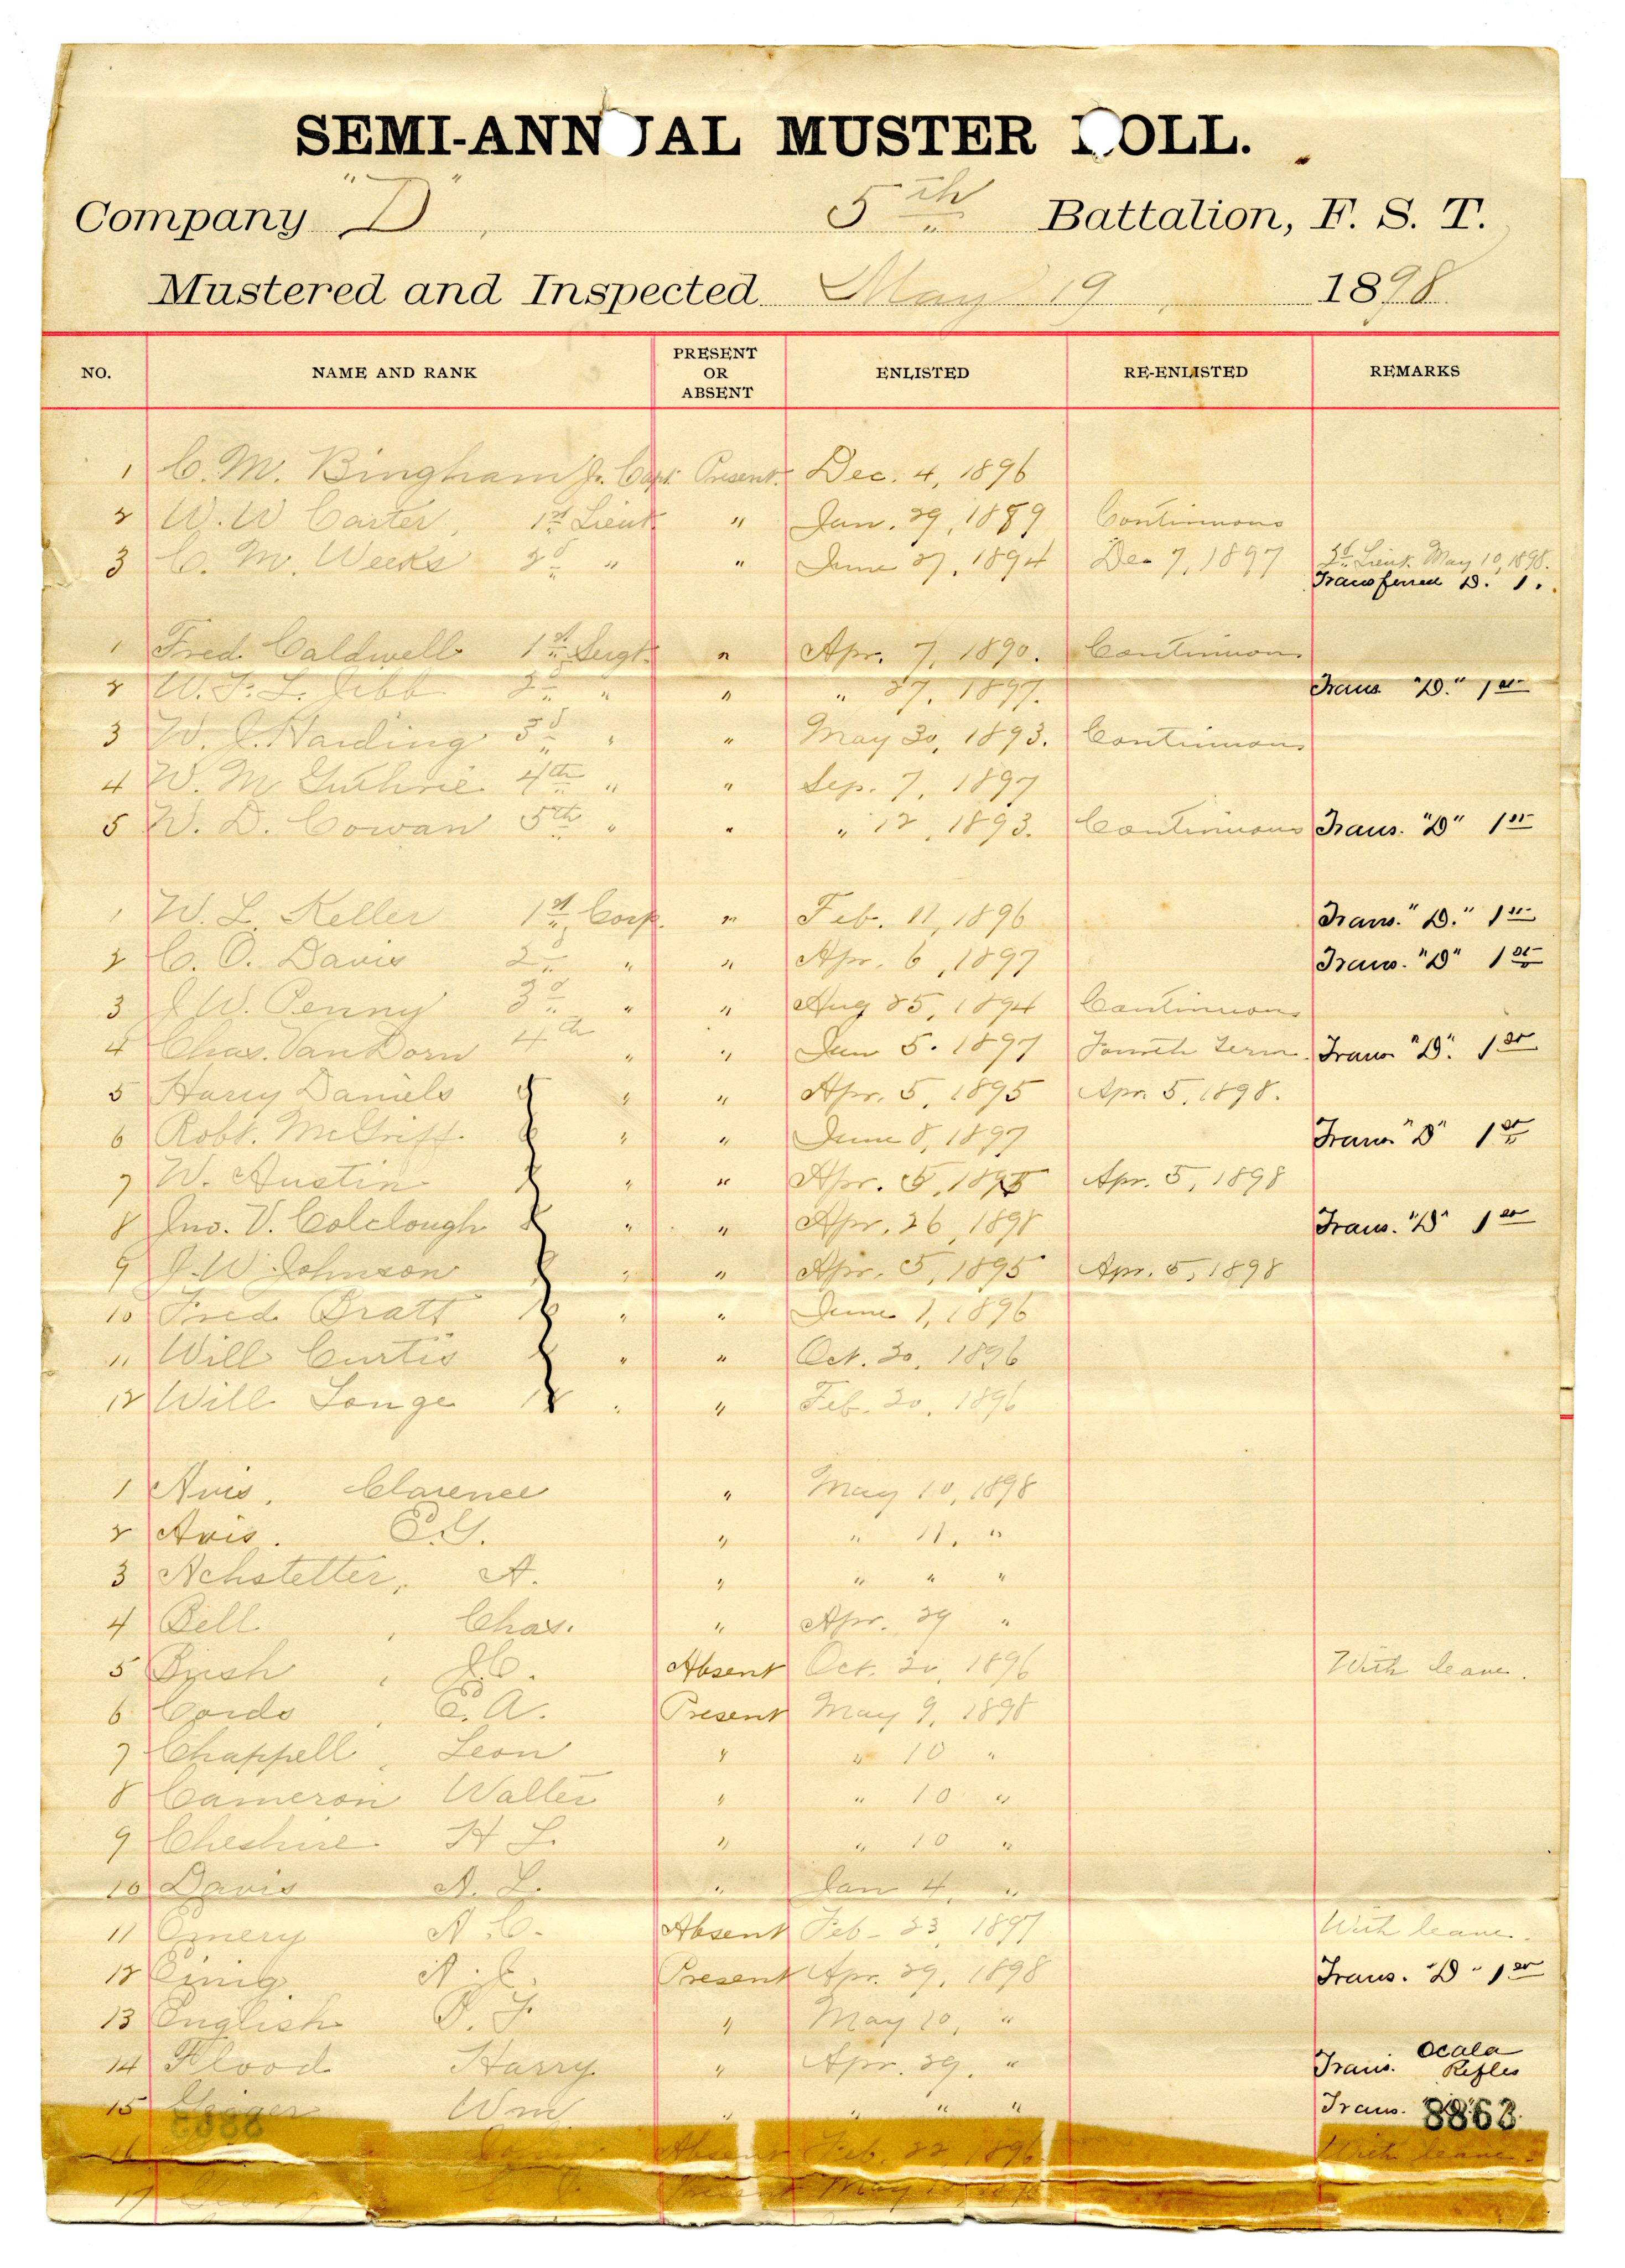 SEMI-ANNUAL MUSTER ROLL.
Company "D", 5th Battalion, F. S. T.
Mustered and Inspected May 19, 1898.
NO. NAME AND RANK PRESENT OR ABSENT ENLISTED RE-ENLISTED REMARKS
1 C. M. Bingham Jr. Capt. Present. Dec. 4, 1896
2 W. W Carter, 1st Lieut " Jan. 29, 1889 Continuous
3 C. M. Weeks 2d " " June 27, 1894 Dec 7, 1897 2d Lieut. May 10, 1898.
Transferred D. 1.
1 Fred Caldwell 1st Sergt. " Apr. 7, 1890. Continuous
2 W. F. L. Jibb 2d " " " 27, 1897. Trans "D." 1st
3 W. J. Harding 3d " " May 30, 1893. Continuous
4 W. M Guthrie 4th " " Sep. 7, 1897
5 W. D. Cowan 5th " " " 12, 1893. Continuous Trans. "D" 1st
1 W. L. Keller 1st Corp. " Feb. 11, 1896 Trans. "D." 1st
2 C. O. Davis 2d " " Apr. 6, 1897 Trans. "D" 1st
3 J W. Penny 3d " " Aug 25, 1894 Continuous
4 Chas. VanDorn 4th " " Jan 5. 1897 Fourth Term. Trans "D". 1st
5 Harry Daniels 5 " " Apr. 5, 1895 Apr. 5, 1898.
6 Robt. McGriff. 6 " " June 8, 1897 Trans "D" 1st
7 W. Austin 7 " " Apr. 5, 1895 Apr. 5, 1898
8 Jno. V. Colclough 8 " " Apr. 26, 1898 Trans. "D" 1st
9 J. W. Johnson 9 " " Apr. 5, 1895 Apr. 5, 1898
10 Fred Bratt 10 " " June 1, 1896
11 Will Curtis 11 " " Oct. 20, 1896
12 Will Longe 12 " " Feb. 20, 1896
1 Avis, Clarence " May 10, 1898
2 Avis. E.G. " " 11. "
3 Achstetter, A. " " " "
4 Bell, Chas. " Apr. 29 "
5 Bush, J.C. Absent Oct. 20, 1896 With leave.
6 Cords, E. A. Present May 9, 1898
7 Chappell, Leon " " 10 "
8 Cameron Walter " " 10 "
9 Cheshire H L. " " 10 "
10 Davis A. L. " Jan 4, "
11 Emery A. C. Absent Feb- 23, 1897 With leave.
12 Einig A. J. Present Apr. 29, 1898 Trans. "D" 1st
13 English P. F. " May 10, "
14 Flood Harry " Apr. 29. " Trans. Ocala Rifles
15 Geiger Wm " " " " Trans.
8863
16 Absent Feb. 22, 1896 With leave.
17 Present May